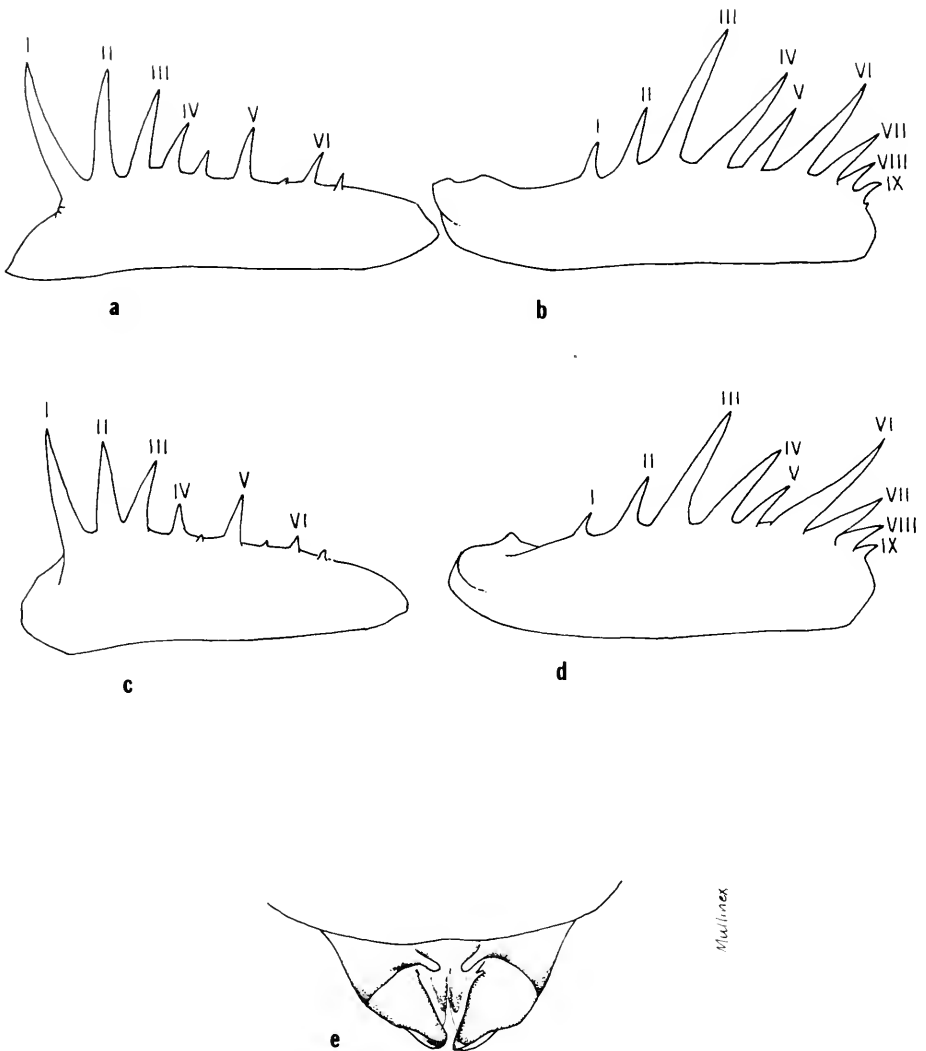 I II III IV V VI
a
I II III IV V VI VII VIII IX
b
I II III IV V VI
c
I II III IV V VI VII VIII IX
d
e
Mullinex